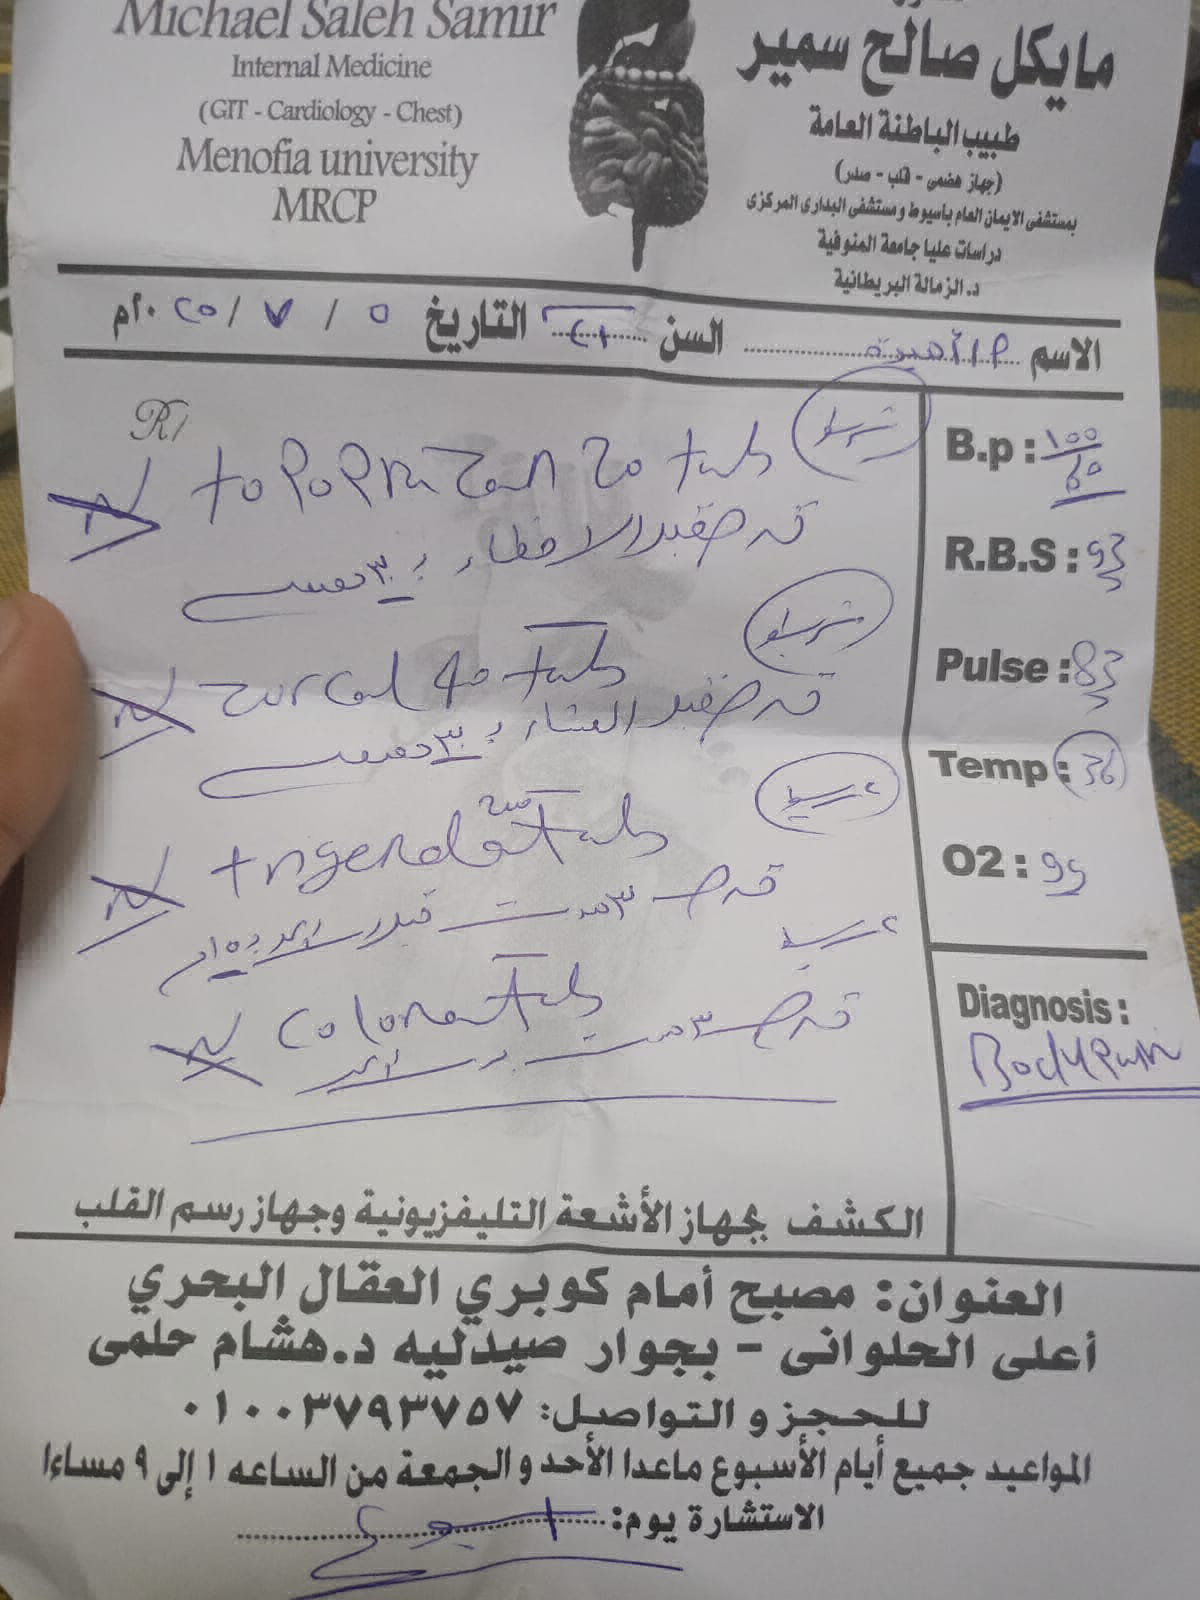 Michael Saleh Samir
Internal Medicine
(GIT - Cardiology - Chest)
Menofia university
MRCP
مايكل صالح سمير
طبيب الباطنة العامة
(جهاز هضمى - قلب - صدر)
بمستشفى الايمان العام بأسيوط ومستشفى البدارى المركزى
دراسات عليا جامعة المنوفية
د. الزمالة البريطانية
الاسم أميرة السن التاريخ ٥ / ٧ / ٢٠٢٥م
R/
topoprazan 20 tab
شريط
قرص قبل الافطار بـ ٣٠ دقيقة
zurcal 40 tab
شريط
قرص قبل العشاء بـ ٣٠ دقيقة
200 tab
٢ شريط
قرص ٣ مرات قبل الاكل
٢ شريط
colona tab
قرص ٣ مرات بعد الاكل
B.p : 100/60
R.B.S : 93
Pulse : 83
Temp : 36
O2 : 99
Diagnosis :
Body Pain
الكشف بجهاز الأشعة التليفزيونية وجهاز رسم القلب
العنوان: مصبح أمام كوبري العقال البحري
أعلى الحلوانى - بجوار صيدليه د.هشام حلمى
للحجز و التواصل: ٠١٠٠٣٧٩٣٧٥٧
المواعيد جميع أيام الأسبوع ماعدا الأحد و الجمعة من الساعه ١ إلى ٩ مساءا
الاستشارة يوم: اسبوع